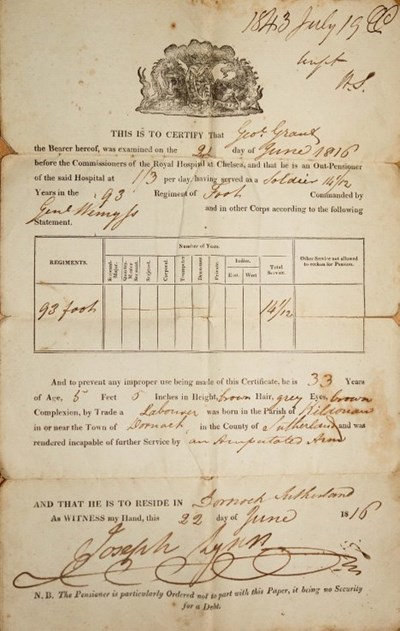 1843 July 19
THIS IS TO CERTIFY That Geo. Grant
the Bearer hereof, was examined on the 21 day of June 1816
before the Commissioners of the Royal Hospital at Chelsea, and that he is an Out-Pensioner
of the said Hospital at 1/3 per day, having served as a Soldier 14/12
Years in the 93 Regiment of Foot Commanded by
Genl Wemyss and in other Corps according to the following
Statement.
REGIMENTS. Number of Years Other Service not allowed to reckon for Pension.
Serjeant-Major. Quarter-Master Serjeant. Serjeant. Corporal. Trumpeter Drummer Private. Indies. East. West Total Service.
93 foot 14/12
And to prevent any improper use being made of this Certificate, he is 33 Years
of Age, 5 Feet 6 Inches in Height, brown Hair, grey Eyes, brown
Complexion, by Trade a Labourer was born in the Parish of Kildonan
in or near the Town of Dornoch in the County of Sutherland and was
rendered incapable of further Service by an Amputated Arm
AND THAT HE IS TO RESIDE IN Dornock Sutherland
As WITNESS my Hand, this 22 day of June 1816
Joseph Lynn
N. B. The Pensioner is particularly Ordered not to part with this Paper, it being no Security
for a Debt.